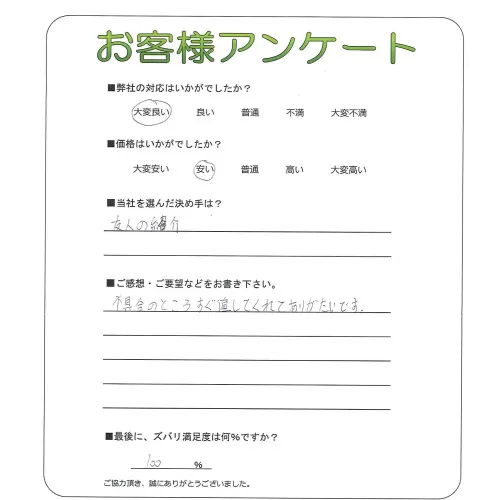 お客様アンケート
■弊社の対応はいかがでしたか？
大変良い 良い 普通 不満 大変不満
■価格はいかがでしたか？
大変安い 安い 普通 高い 大変高い
■当社を選んだ決め手は？
友人の紹介
■ご感想・ご要望などをお書き下さい。
不具合のところすぐ直してくれてありがたいです.
■最後に、ズバリ満足度は何%ですか？
100 %
ご協力頂き、誠にありがとうございました。